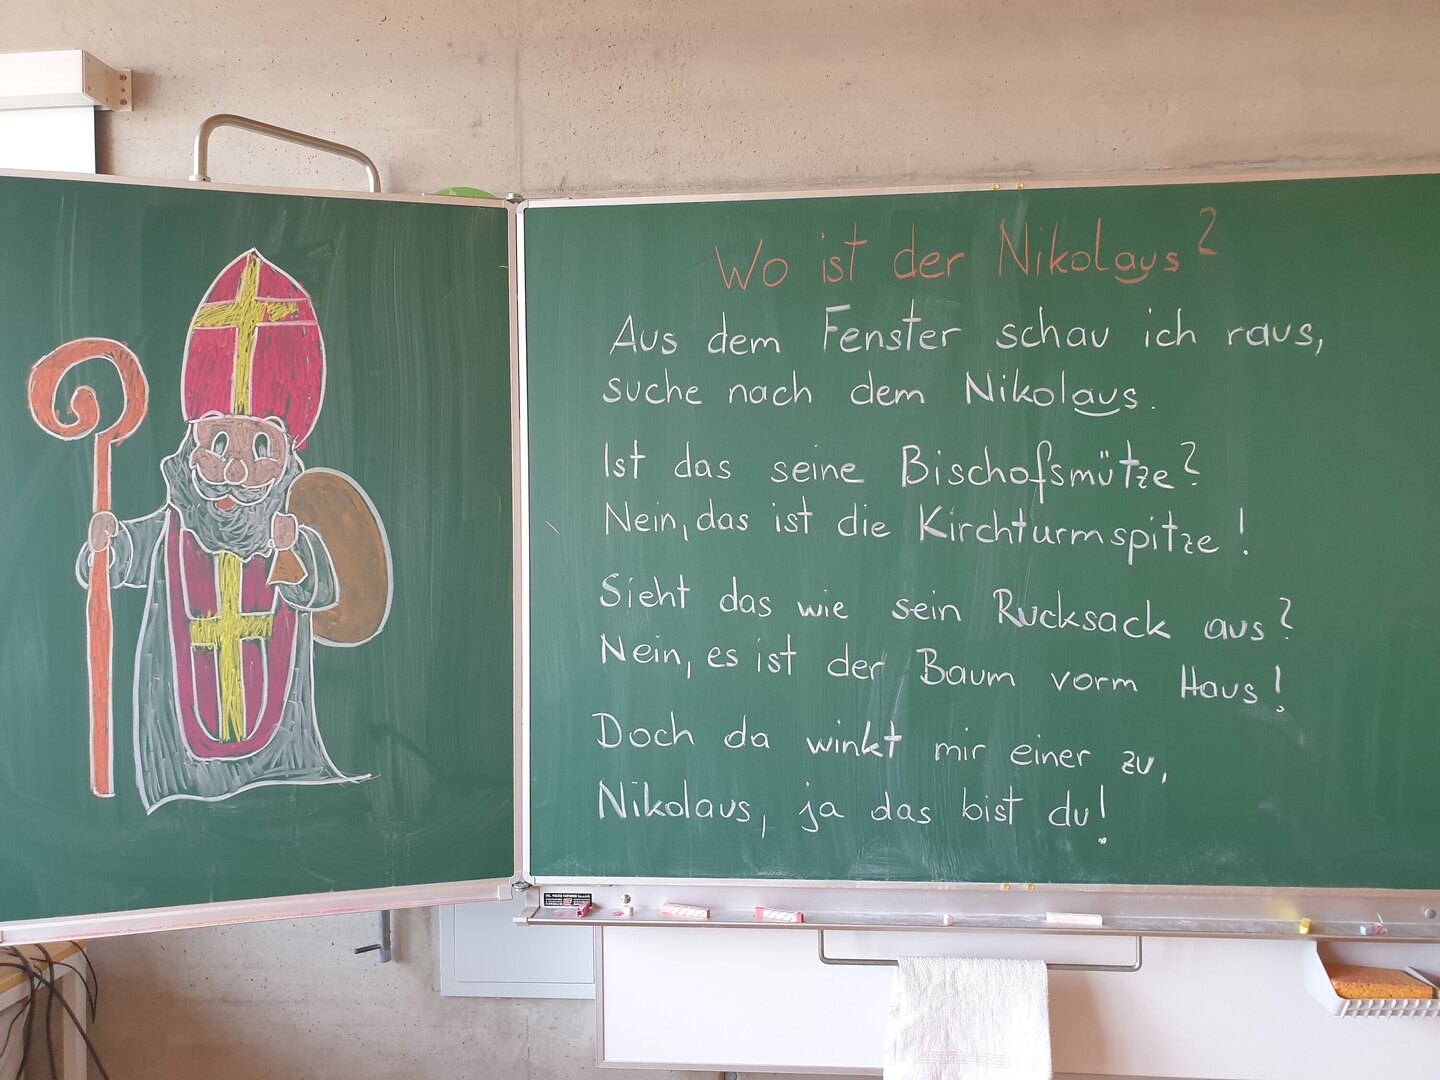 Wo ist der Nikolaus?
Aus dem Fenster schau ich raus,
suche nach dem Nikolaus.
Ist das seine Bischofsmütze?
Nein, das ist die Kirchturmspitze!
Sieht das wie sein Rucksack aus?
Nein, es ist der Baum vorm Haus!
Doch da winkt mir einer zu,
Nikolaus, ja das bist du!